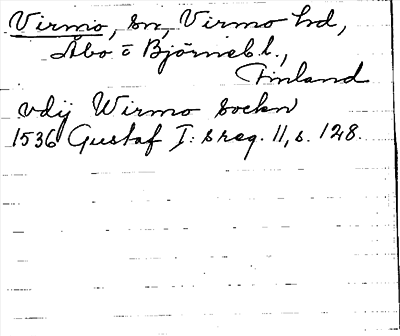 Virmo, sn, Virmo hd,
Åbo o Björneb. l.,
Finland
vdij Wirmo sockn
1536 Gustaf I:s reg. 11, s. 128.